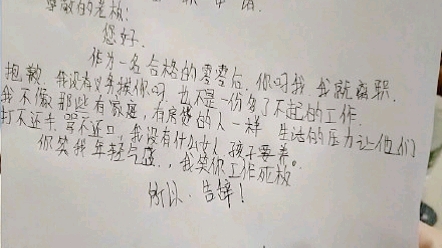 辞职申请
尊敬的老板:
您好.
作为一名合格的零零后.你吼我.我就离职.
抱歉.我没有义务挨你吼也不是一份多了不起的工作.
我不像那些有家庭,有房贷的人一样 生活的压力让他们
打不还手.骂不还口,我没有什么女人孩子要养。
你笑我年轻气盛,我笑你工作死板
所以.告辞!